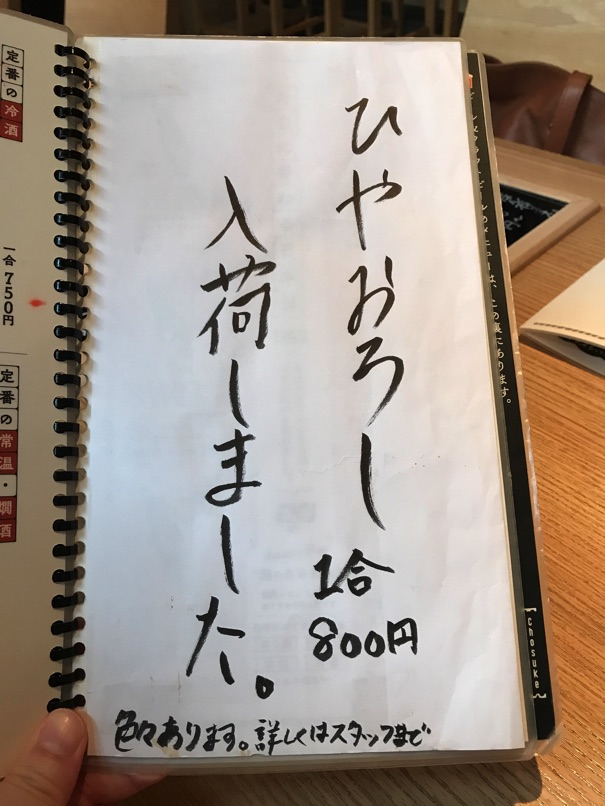 ひやおろし
1合
800円
入荷しました。
色々あります。詳しくはスタッフまで
定番の冷酒
一合750円
定番の常温・燗酒
のメニューは、この裏にあります。
chosuke